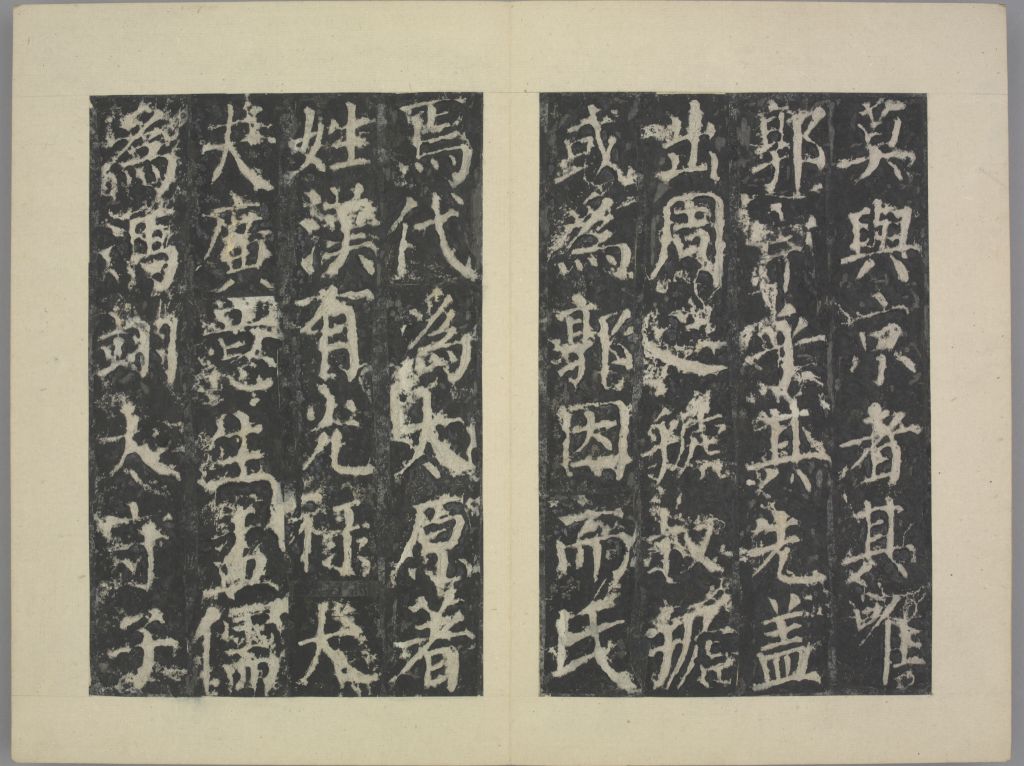 莫與京者其唯
郭宗乎其先盖
出周之虢叔虢
或為郭因而氏
焉代為太原著
姓漢有光禄大
夫廣意生孟儒
為馮翊太守子